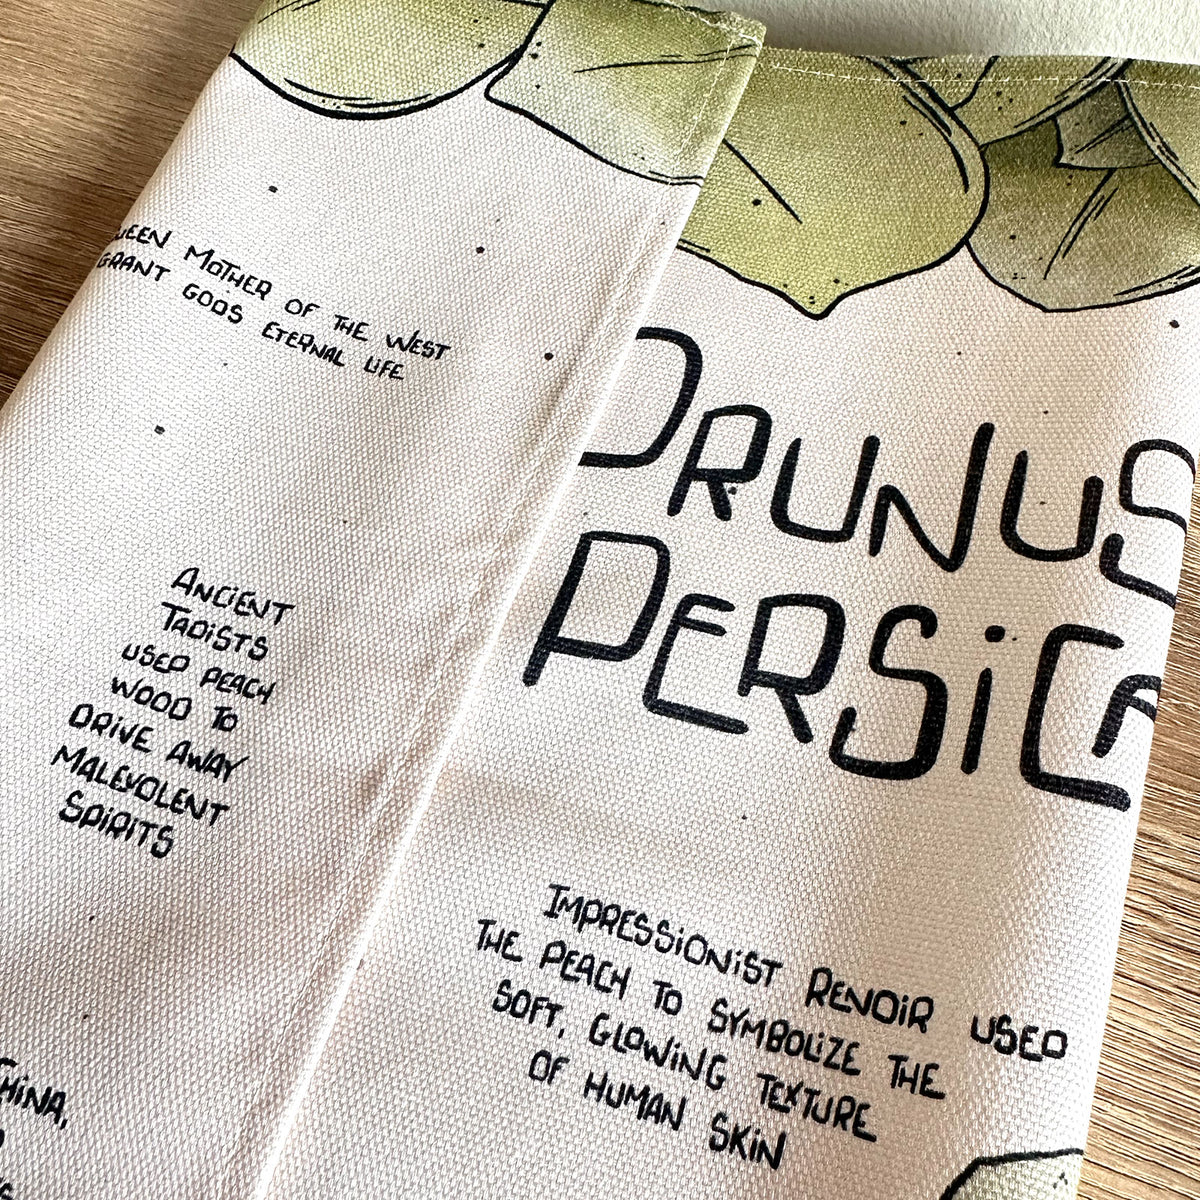 MOTHER OF THE WEST
GRANT GODS ETERNAL LIFE
ANCIENT
TAOISTS
USED PEACH
WOOD TO
DRIVE AWAY
MALEVOLENT
SPIRITS
CHINA,
PRUNUS
PERSICA
IMPRESSIONIST RENOIR USED
THE PEACH TO SYMBOLIZE THE
SOFT, GLOWING TEXTURE
OF HUMAN SKIN